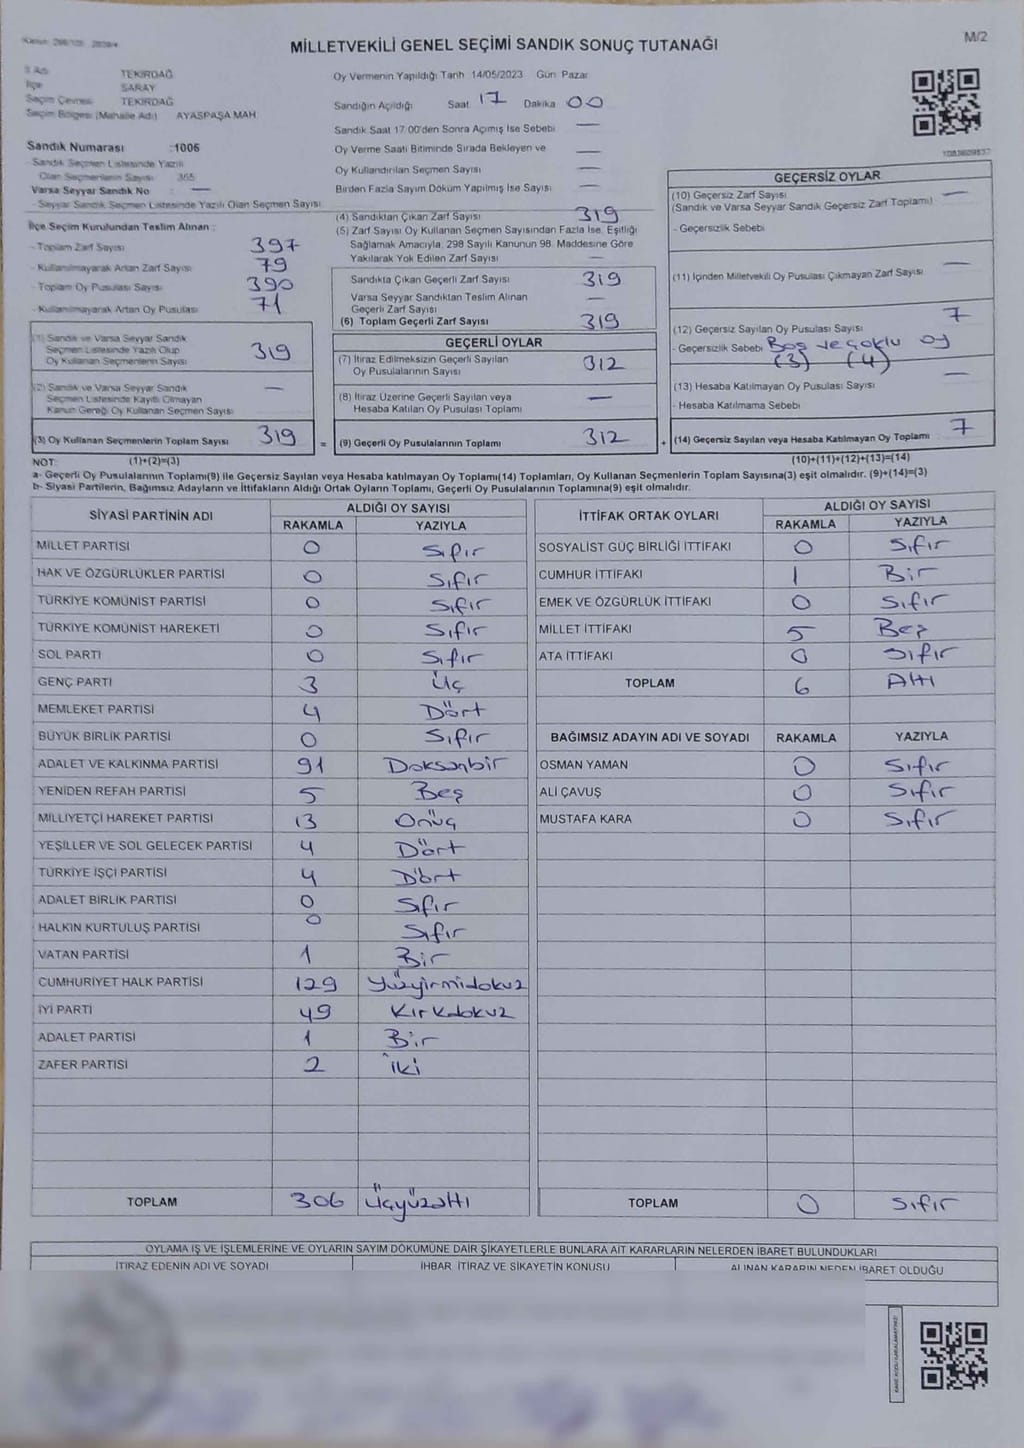 MİLLETVEKİLİ GENEL SEÇİMİ SANDIK SONUÇ TUTANAĞI
M/2
İl Adı TEKİRDAĞ
İlçe SARAY
Seçim Çevresi TEKİRDAĞ
Seçim Bölgesi (Mahalle Adı) AYASPAŞA MAH.
Sandık Numarası :1006
- Sandık Seçmen Listesinde Yazılı
Olan Seçmenlerin Sayısı 365
Varsa Seyyar Sandık No : —
- Seyyar Sandık Seçmen Listesinde Yazılı Olan Seçmen Sayısı
Oy Vermenin Yapıldığı Tarih 14/05/2023 Gün Pazar
Sandığın Açıldığı Saat 17 Dakika 00
Sandık Saat 17:00'den Sonra Açılmış İse Sebebi —
Oy Verme Saati Bitiminde Sırada Bekleyen ve —
Oy Kullandırılan Seçmen Sayısı —
Birden Fazla Sayım Döküm Yapılmış İse Sayısı —
İlçe Seçim Kurulundan Teslim Alınan :
- Toplam Zarf Sayısı 397
- Kullanılmayarak Artan Zarf Sayısı 79
- Toplam Oy Pusulası Sayısı 390
- Kullanılmayarak Artan Oy Pusulası 71
(1) Sandık ve Varsa Seyyar Sandık
Seçmen Listesinde Yazılı Olup
Oy Kullanan Seçmenlerin Sayısı 319
(2) Sandık ve Varsa Seyyar Sandık
Seçmen Listesinde Kayıtlı Olmayan
Kanun Gereği Oy Kullanan Seçmen Sayısı —
(3) Oy Kullanan Seçmenlerin Toplam Sayısı 319
(4) Sandıktan Çıkan Zarf Sayısı 319
(5) Zarf Sayısı Oy Kullanan Seçmen Sayısından Fazla İse, Eşitliği
Sağlamak Amacıyla, 298 Sayılı Kanunun 98. Maddesine Göre
Yakılarak Yok Edilen Zarf Sayısı —
Sandıkta Çıkan Geçerli Zarf Sayısı 319
Varsa Seyyar Sandıktan Teslim Alınan
Geçerli Zarf Sayısı —
(6) Toplam Geçerli Zarf Sayısı 319
GEÇERLİ OYLAR
(7) İtiraz Edilmeksizin Geçerli Sayılan
Oy Pusulalarının Sayısı 312
(8) İtiraz Üzerine Geçerli Sayılan veya
Hesaba Katılan Oy Pusulası Toplamı —
= (9) Geçerli Oy Pusulalarının Toplamı 312
GEÇERSİZ OYLAR
(10) Geçersiz Zarf Sayısı —
(Sandık ve Varsa Seyyar Sandık Geçersiz Zarf Toplamı)
- Geçersizlik Sebebi
(11) İçinden Milletvekili Oy Pusulası Çıkmayan Zarf Sayısı —
(12) Geçersiz Sayılan Oy Pusulası Sayısı 7
- Geçersizlik Sebebi Boş ve çoklu oy
(3) (4)
(13) Hesaba Katılmayan Oy Pusulası Sayısı —
- Hesaba Katılmama Sebebi
+ (14) Geçersiz Sayılan veya Hesaba Katılmayan Oy Toplamı 7
NOT: (1)+(2)=(3) (10)+(11)+(12)+(13)=(14)
a- Geçerli Oy Pusulalarının Toplamı(9) ile Geçersiz Sayılan veya Hesaba katılmayan Oy Toplamı(14) Toplamları, Oy Kullanan Seçmenlerin Toplam Sayısına(3) eşit olmalıdır. (9)+(14)=(3)
b- Siyasi Partilerin, Bağımsız Adayların ve İttifakların Aldığı Ortak Oyların Toplamı, Geçerli Oy Pusulalarının Toplamına(9) eşit olmalıdır.
SİYASİ PARTİNİN ADI ALDIĞI OY SAYISI
RAKAMLA YAZIYLA
MİLLET PARTİSİ 0 Sıfır
HAK VE ÖZGÜRLÜKLER PARTİSİ 0 Sıfır
TÜRKİYE KOMÜNİST PARTİSİ 0 Sıfır
TÜRKİYE KOMÜNİST HAREKETİ 0 Sıfır
SOL PARTİ 0 Sıfır
GENÇ PARTİ 3 Üç
MEMLEKET PARTİSİ 4 Dört
BÜYÜK BİRLİK PARTİSİ 0 Sıfır
ADALET VE KALKINMA PARTİSİ 91 Doksanbir
YENİDEN REFAH PARTİSİ 5 Beş
MİLLİYETÇİ HAREKET PARTİSİ 13 Onüç
YEŞİLLER VE SOL GELECEK PARTİSİ 4 Dört
TÜRKİYE İŞÇİ PARTİSİ 4 Dört
ADALET BİRLİK PARTİSİ 0 Sıfır
HALKIN KURTULUŞ PARTİSİ 0 Sıfır
VATAN PARTİSİ 1 Bir
CUMHURİYET HALK PARTİSİ 129 Yüzyirmidokuz
İYİ PARTİ 49 Kırkdokuz
ADALET PARTİSİ 1 Bir
ZAFER PARTİSİ 2 İki
TOPLAM 306 Üçyüzaltı
İTTİFAK ORTAK OYLARI ALDIĞI OY SAYISI
RAKAMLA YAZIYLA
SOSYALİST GÜÇ BİRLİĞİ İTTİFAKI 0 Sıfır
CUMHUR İTTİFAKI 1 Bir
EMEK VE ÖZGÜRLÜK İTTİFAKI 0 Sıfır
MİLLET İTTİFAKI 5 Beş
ATA İTTİFAKI 0 Sıfır
TOPLAM 6 Altı
BAĞIMSIZ ADAYIN ADI VE SOYADI RAKAMLA YAZIYLA
OSMAN YAMAN 0 Sıfır
ALİ ÇAVUŞ 0 Sıfır
MUSTAFA KARA 0 Sıfır
TOPLAM 0 Sıfır
OYLAMA İŞ VE İŞLEMLERİNE VE OYLARIN SAYIM DÖKÜMÜNE DAİR ŞİKAYETLERLE BUNLARA AİT KARARLARIN NELERDEN İBARET BULUNDUKLARI
İTİRAZ EDENİN ADI VE SOYADI İHBAR, İTİRAZ VE ŞİKAYETİN KONUSU ALINAN KARARIN NEDEN İBARET OLDUĞU